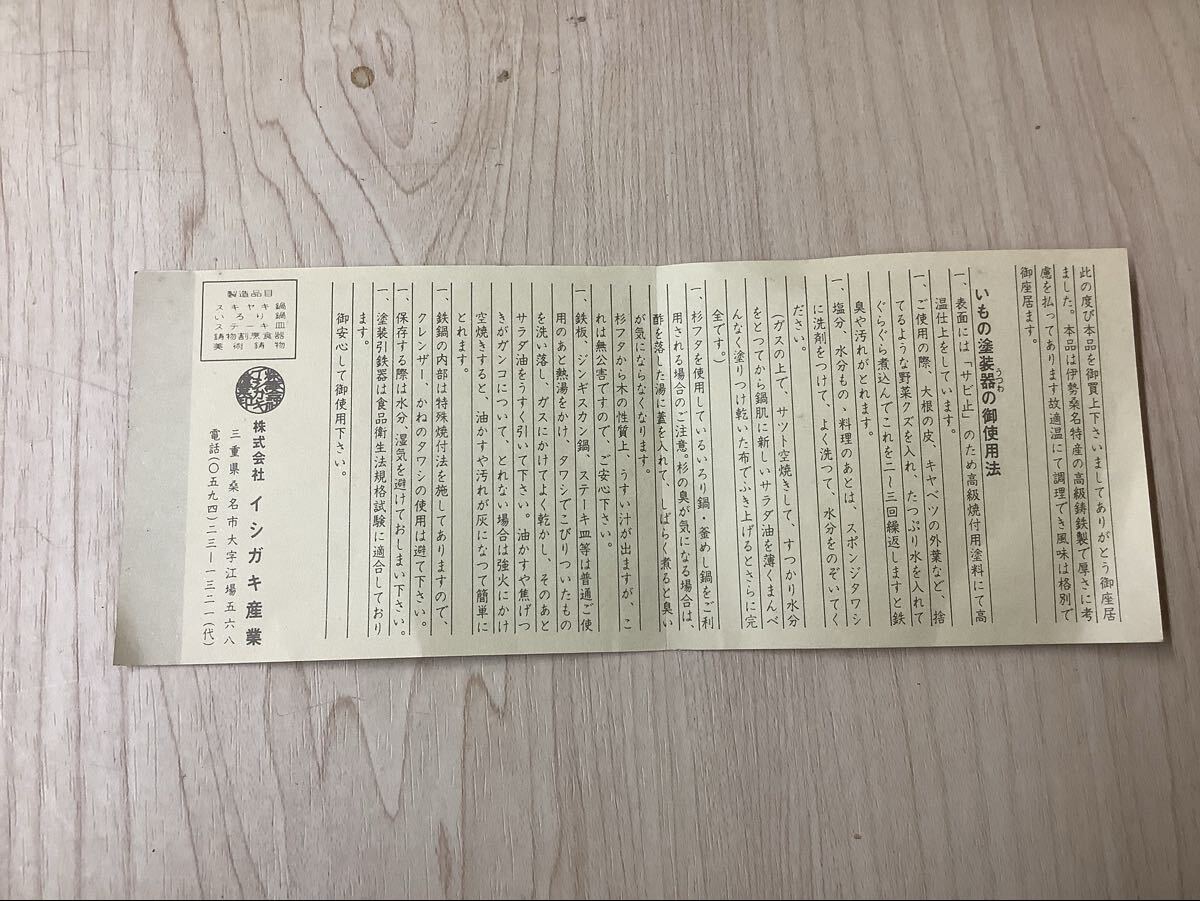 此の度び本品を御買上下さいましてありがとう御座居
ました。本品は伊勢桑名特産の高級鋳鉄製で厚さに考
慮を払ってあります故適温にて調理でき風味は格別で
御座居ます。
いもの塗装器の御使用法
うつわ
一、表面には「サビ止」のため高級焼付用塗料にて高
温仕上をしています。
一、ご使用の際、大根の皮、キヤベツの外葉など、捨
てるような野菜クズを入れ、たつぷり水を入れて
ぐらぐら煮込んでこれを二〜三回繰返しますと鉄
臭や汚れがとれます。
一、塩分、水分もの、料理のあとは、スポンジタワシ
に洗剤をつけて、よく洗つて、水分をのぞいてく
ださい。
(ガスの上で、サツト空焼きして、すつかり水分
をとつてから鍋肌に新しいサラダ油を薄くまんべ
んなく塗りつけ乾いた布でふき上げるとさらに完
全です。)
一、杉フタを使用しているいろり鍋・釜めし鍋をご利
用される場合のご注意。杉の臭が気になる場合は、
酢を落した湯に蓋を入れて、しばらく煮ると臭い
が気にならなくなります。
杉フタから木の性質上、うすい汁が出ますが、こ
れは無公害ですので、ご安心下さい。
一、鉄板、ジンギスカン鍋、ステーキ皿等は普通ご使
用のあと熱湯をかけ、タワシでこびりついたもの
を洗い落し、ガスにかけてよく乾かし、そのあと
サラダ油をうすく引いて下さい。油かすや焦げつ
きがガンコについて、とれない場合は強火にかけ
空焼きすると、油かすや汚れが灰になつて簡単に
とれます。
一、鉄鍋の内部は特殊焼付法を施してありますので、
クレンザー、かねのタワシの使用は避て下さい。
一、保存する際は水分、湿気を避けておしまい下さい。
一、塗装引鉄器は食品衛生法規格試験に適合しており
ます。
御安心して御使用下さい。
製造品目
スキヤキ鍋
いろり鍋
ステーキ皿
鋳物割烹食器
美術鋳物
株式会社 イシガキ産業
三重県桑名市大字江場五六八
電話(〇五九四)二三―一三二一(代)